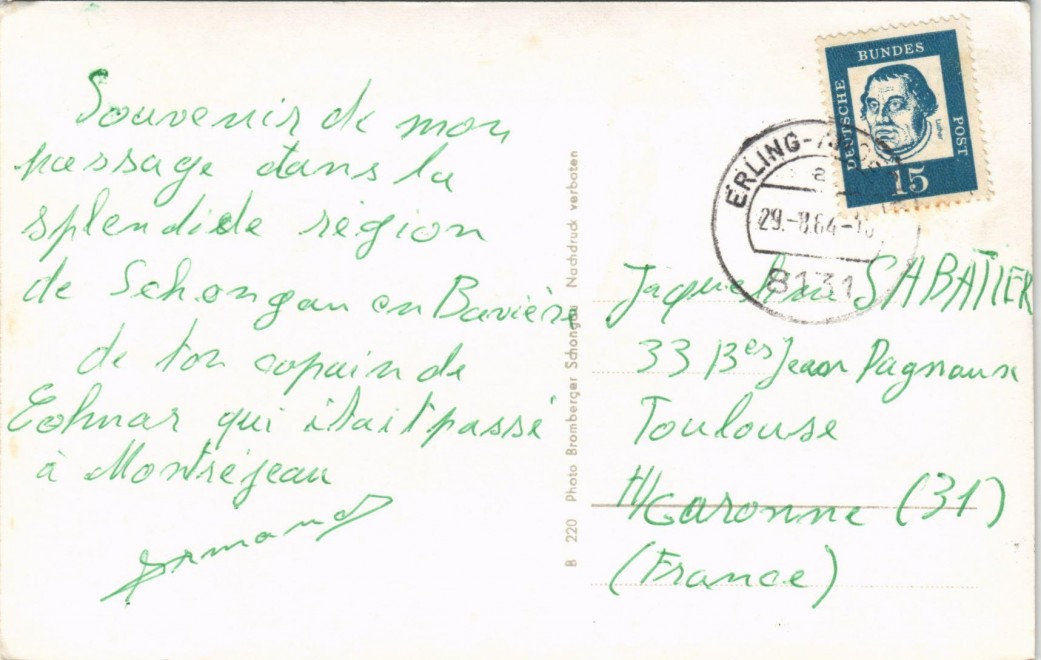 Souvenir de mon
passage dans la
splendide région
de Schongau en Bavière
de ton copain de
Colmar qui était passé
à Montréjeau
Armand
B 220 Photo Bromberger Schongau Nachdruck verboten
DEUTSCHE BUNDES POST
Luther
15
ERLING-
a
29.-8.64-
8131
Jacqueline SABATIER
33 Bes Jean Dagnaux
Toulouse
H/Garonne (31)
(France)